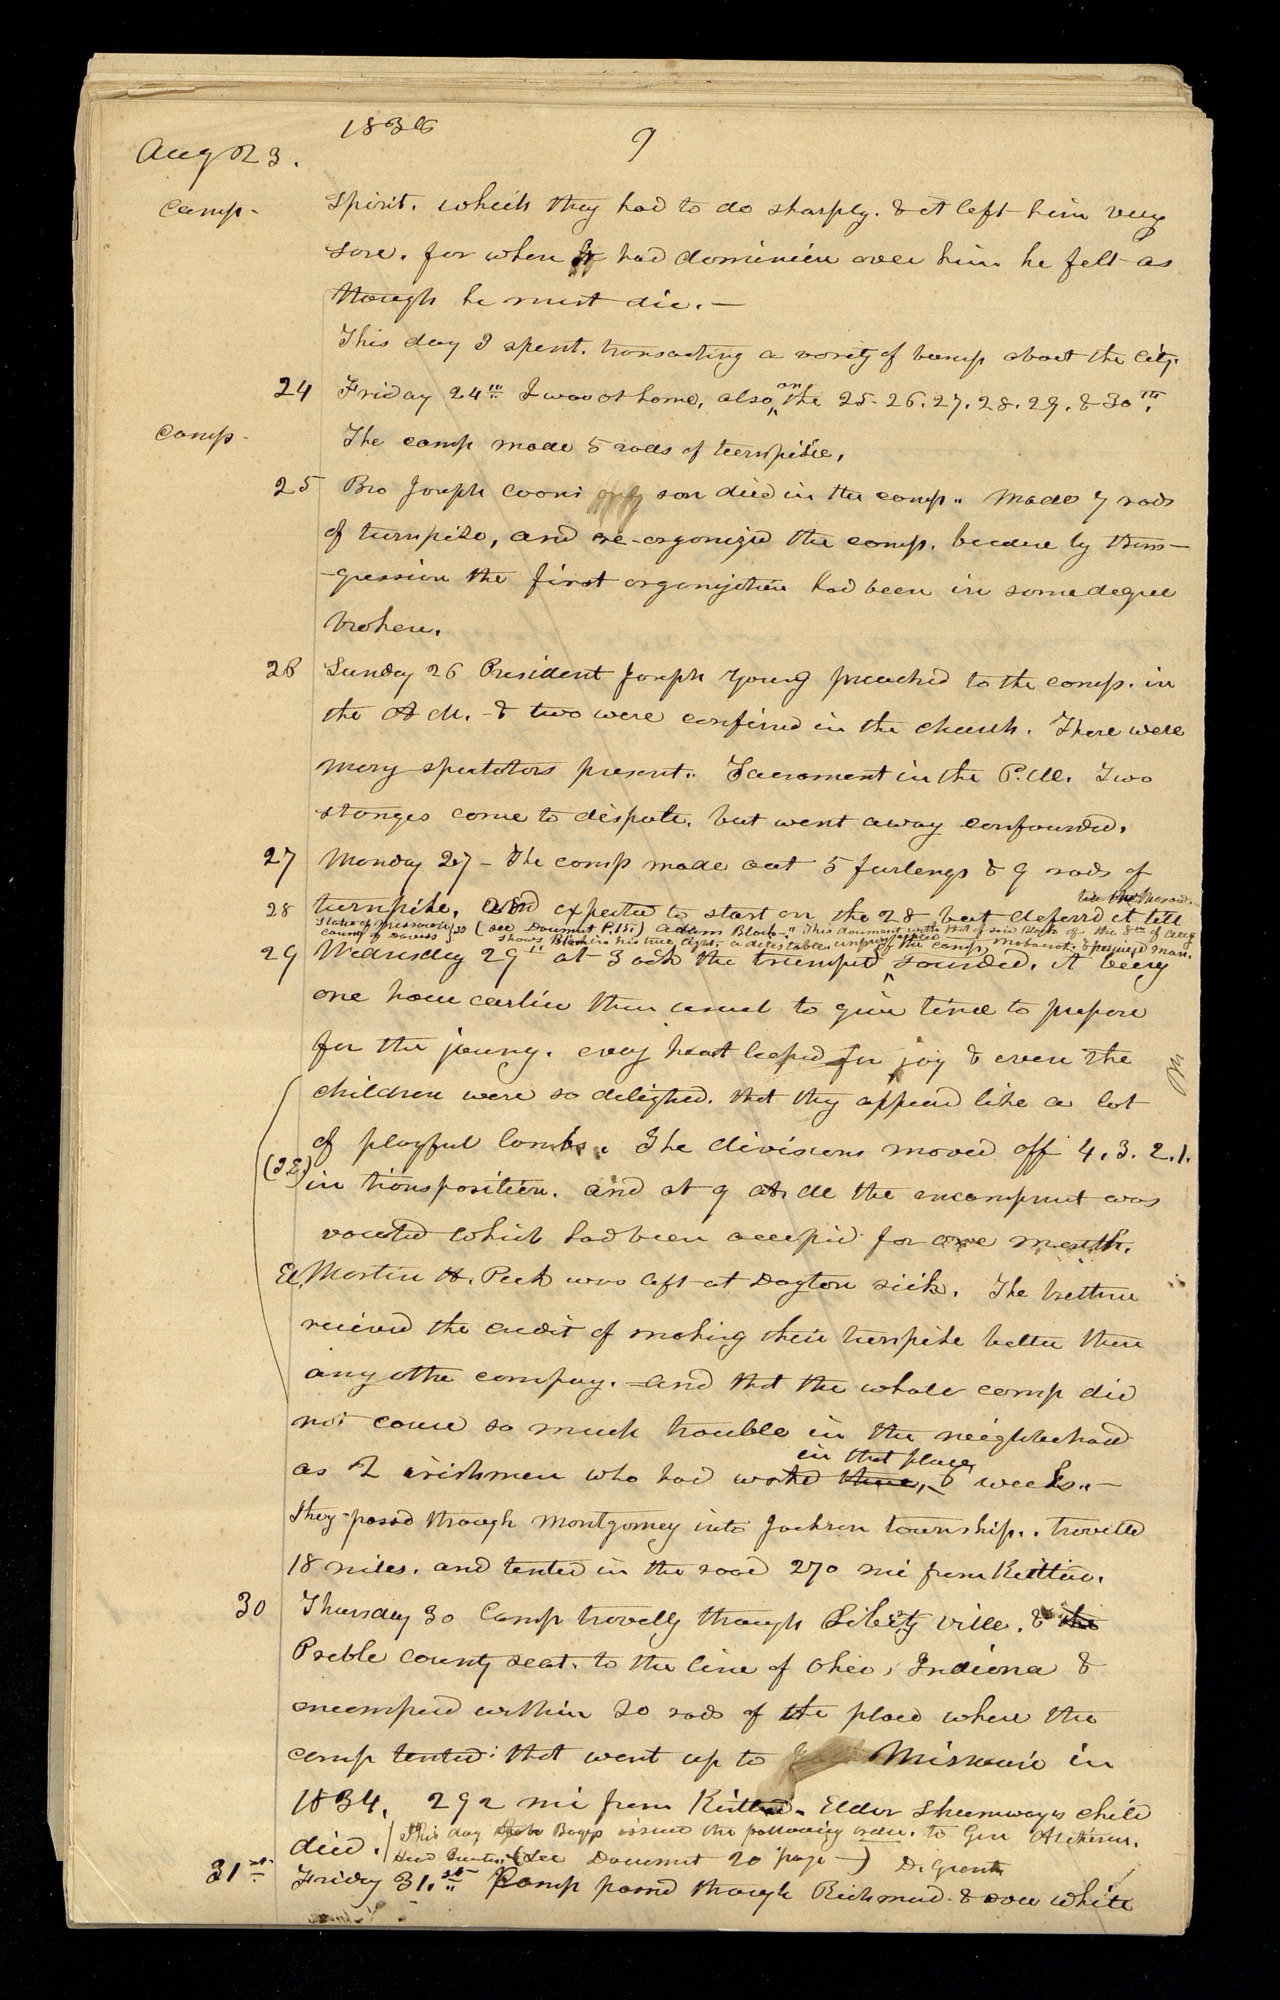 1838
9
Aug 23.
Camp-
spirit. which they had to do sharply. & it left him very
sore. for when it had dominion over him he felt as
though he must die.—
This day I spent. transacting a variety of business about the city.
24 Friday 24th I was at home, also on the 25. 26. 27. 28. 29. & 30th.
Camp-
The camp made 5 rods of turnpike,
25 Bro Joseph Coons only son died in the camp.. Made 7 rods
of turnpike, and re-organized the camp. because by trans—
-gression the first organization had been in some degree
broken.
26 Sunday 26 President Joseph Young preached to the camp. in
the A M. & two were confirmed in the church. There were
many spectators present.. Sacrament in the P.M. Two
stranges come to dispute, but went away confounded.
27 Monday 27 - The camp made out 5 furlongs & 9 rods of
28 turnpike. and expected to start on the 28 but deferrd it till the morrow.
State of Missouri County of Daviess } ss (see Doument P. 15.) Adam Black." This doument with that of said Black of the 8th of Aug
shows Black in his true light, a detestable, unprincipled mobocrat & perjured man.
29 Wednesday 29th at 3 ock the trumpet of the camp sounded. it being
one hour earlier then usual to give time to prepare
for the journy. every heart leaped for joy & even the
children were so delighted. that they appeard like a lot
of playful lambs.. The divisions moved off 4. 3. 2. 1.
in transposition. and at 9 A. M the encampmet was
vacated which had been occupied for one month.
El Martin H. Peck was left at Dayton sick. The brethren
recieved the credit of making their turnpike better then
any othr company. and that the whole camp did
not cause so much trouble in the neighborhood
as 2 irishmen who had workd there, in that place, 6 weeks..—
they passed through Montgomery into Jackson township.. travelled
18 miles. and tented in the road 270 mi from Kirtland.
30 Thursday 30 Camp travelly through Liberty ville. & the
Preble county seat. to the line of Ohio, Indiana &
encamped within 20 rods of the place where the
camp tented that went up to Missouri in
1834. 292 mi from Kirtland. Elder Shumways child
died. / This day Boggs issued the following order. to Gen Atchison.
(See Doument 20 page—)
31st Friday 31.st Camp passd through Richmond. & saw white